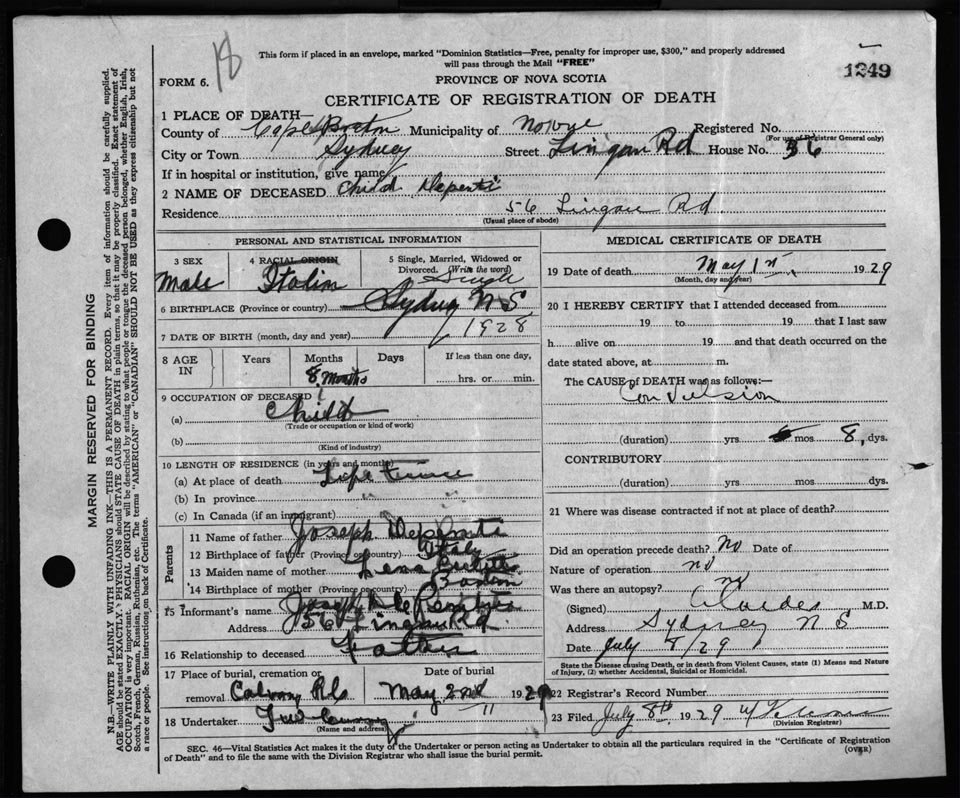 18
This form if placed in an envelope, marked "Dominion Statistics—Free, penalty for improper use, $300," and properly addressed
will pass through the Mail "FREE"
1249
FORM 6.
PROVINCE OF NOVA SCOTIA
CERTIFICATE OF REGISTRATION OF DEATH
1 PLACE OF DEATH—
County of Cape Breton Municipality of Registered No.
(For use of Registrar General only)
City or Town Sydney Street Lingan Rd House No. 56
If in hospital or institution, give name
2 NAME OF DECEASED Child
Residence 56 Lingan Rd
(Usual place of abode)
PERSONAL AND STATISTICAL INFORMATION
3 SEX 4 RACIAL ORIGIN 5 Single, Married, Widowed or
Divorced. (Write the word)
Male Italin Single
6 BIRTHPLACE (Province or country) Sydney N S
7 DATE OF BIRTH (month, day and year) 1928
8 AGE IN Years Months Days If less than one day,
8 Months hrs. or min.
9 OCCUPATION OF DECEASED
(a) Child
(Trade or occupation or kind of work)
(b)
(Kind of industry)
10 LENGTH OF RESIDENCE (in years and months)
(a) At place of death Life time
(b) In province
(c) In Canada (if an immigrant)
Parents
11 Name of father Joseph
12 Birthplace of father (Province or country) Italy
13 Maiden name of mother Lena
14 Birthplace of mother (Province or country) Boston
15 Informant's name Joseph
Address 56 Lingan Rd.
16 Relationship to deceased Father
17 Place of burial, cremation or Date of burial
removal Calvary May 2nd 1929
18 Undertaker
(Name and address)
MEDICAL CERTIFICATE OF DEATH
19 Date of death May 1st, 1929
(Month, day and year)
20 I HEREBY CERTIFY that I attended deceased from
19 to 19 that I last saw
h alive on 19 and that death occurred on the
date stated above, at m.
The CAUSE of DEATH was as follows:—
Convulsion
(duration) yrs. mos 8, dys.
CONTRIBUTORY
(duration) yrs. mos dys.
21 Where was disease contracted if not at place of death?
Did an operation precede death? No Date of
Nature of operation no
Was there an autopsy? no
(Signed) M.D.
Address Sydney N S
Date July 8/29
State the Disease causing Death, or in death from Violent Causes, state (1) Means and Nature
of Injury, (2) whether Accidental, Suicidal or Homicidal.
22 Registrar's Record Number
23 Filed July 8th 1929
(Division Registrar)
SEC. 46—Vital Statistics Act makes it the duty of the Undertaker or person acting as Undertaker to obtain all the particulars required in the "Certificate of Registration
of Death" and to file the same with the Division Registrar who shall issue the burial permit.
(OVER)
MARGIN RESERVED FOR BINDING
N.B.—WRITE PLAINLY WITH UNFADING INK—THIS IS A PERMANENT RECORD. Every item of information should be carefully supplied.
AGE should be stated EXACTLY. PHYSICIANS should STATE CAUSE OF DEATH in plain terms, so that it may be properly classified. Exact statement of
OCCUPATION is very important. RACIAL ORIGIN will be described by stating to what people or tongue the deceased person belonged, whether English, Irish,
Scotch, French, German, Russian, Ruthenian, etc. The terms "AMERICAN" or "CANADIAN" SHOULD NOT BE USED as they express citizenship but not
a race or people. See instructions on back of Certificate.